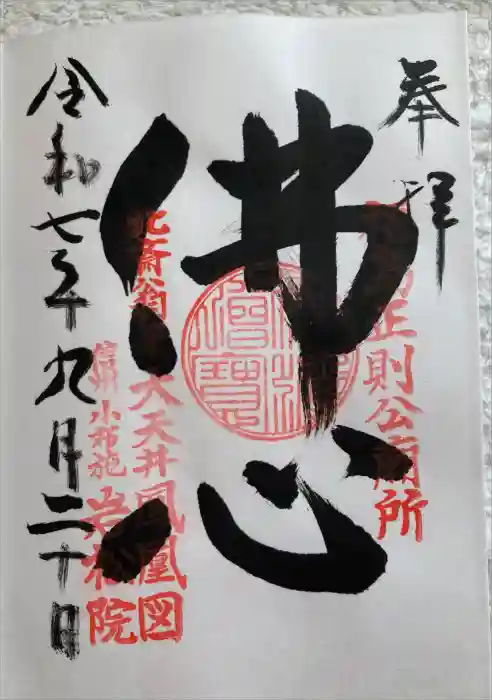 奉拝
正則公廟所
佛心
北斎翁
大天井鳳凰図
信州小布施
岩松院
令和七年九月二十日